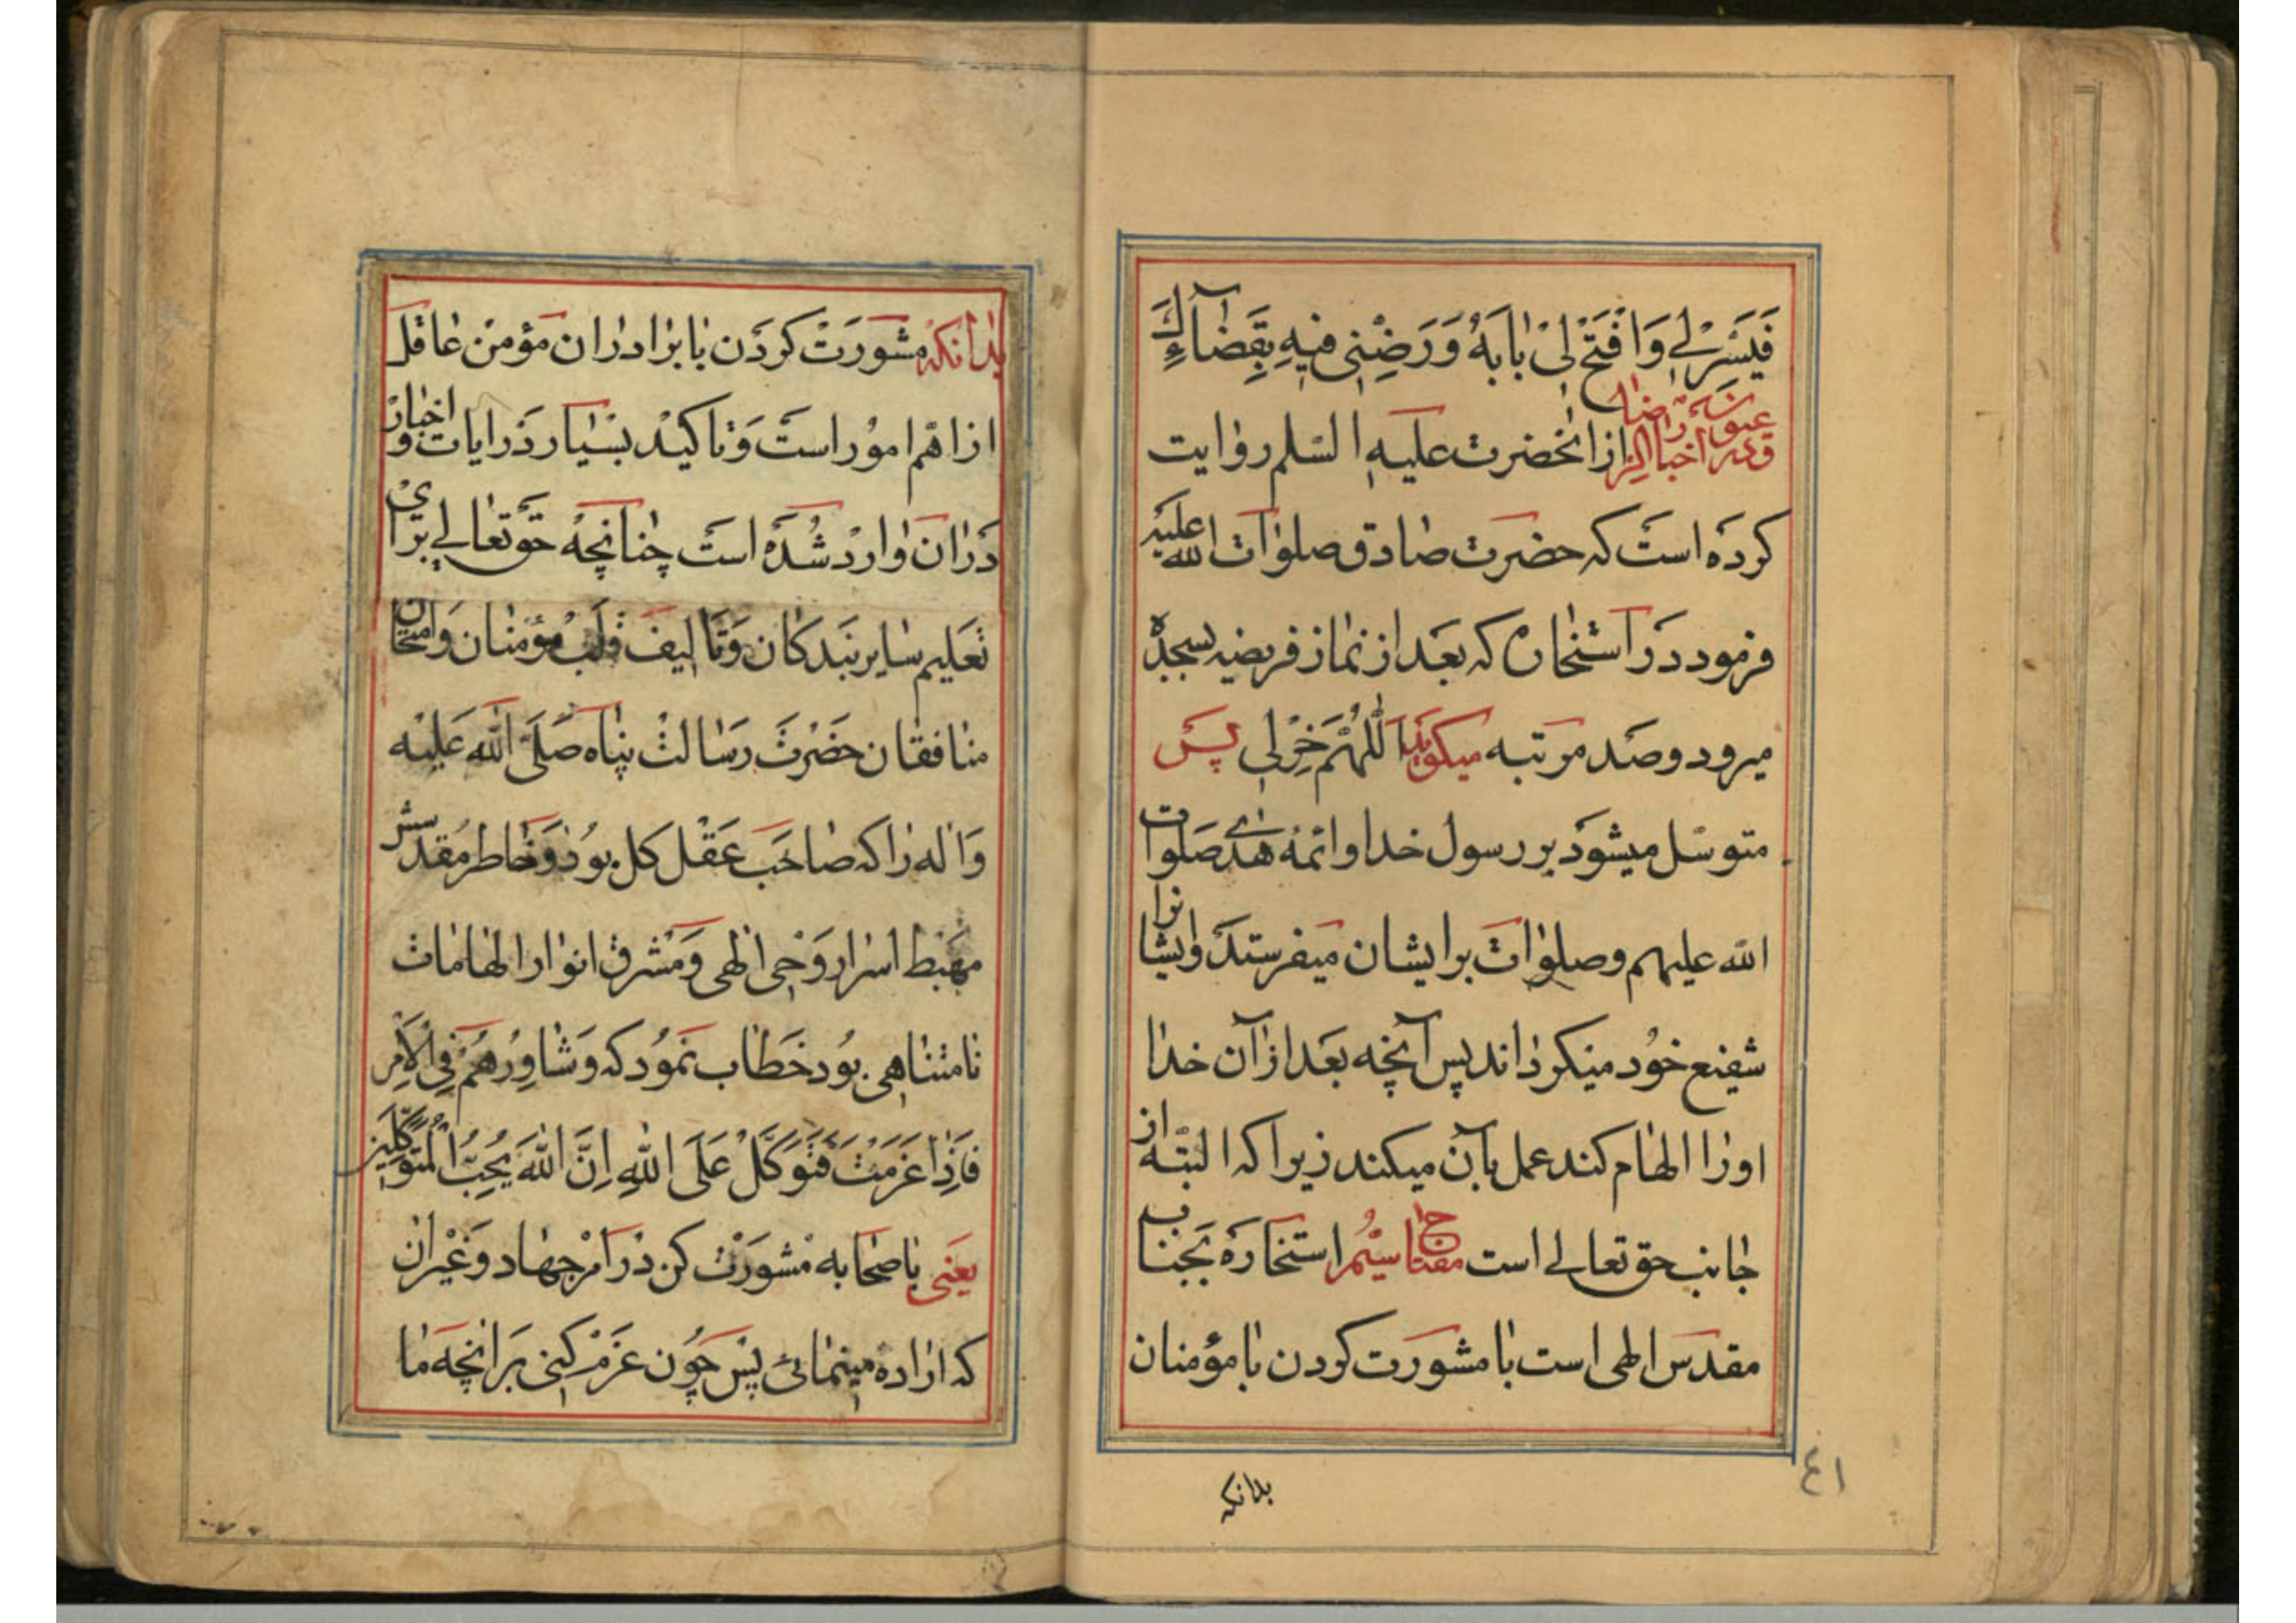 فَيَسِّرْ لي وَافْتَحْ لىْ بابَهُ وَرَضِّنِى فيهِ بِقَضآءِكَ
از انحضرت عليه السلم روايت
كرده است كه حضرت صادق صلوات الله عليه
فرمود در استخاره كه بعد از نماز فريضه بسجده
ميرود وصد مرتبه ميكويد اَللّهُمَّ خِرْلى پس
متوسّل ميشود بر رسول خدا وائمّه هدى صلوات
الله عليهم وصلوات بر ايشان ميفرستد وايشانرا
شفيع خود ميكرداند پس آنچه بعد از آن خدا
اورا الهام كند عمل بآن ميكند زيرا كه البتّه از
جانب حق تعالى است مفتاح سيّم استخاره بجناب
مقدس الهى است با مشورت كردن با مؤمنان
٤١
بدانكه
بدانكه مشورت كردن با برادران مؤمن عاقل
از اهمّ امور است وتاكيد بسيار در ايات و اخبار
در ان وارد شده است چنانچه حق تعالى براى
تعليم ساير بندكان وتاليف قلب مؤمنان وامتحان
منافقان حضرت رسالت پناه صَلَّى الله عَليْه
وَاله را كه صاحب عقل كل بود وخاطر مقدسش
مهبط اسرار وَحى الهى وَمشرق انوار الهامات
نامتناهى بود خطاب نمود كه وَشاوِرْهُمْ فِى الْاَمْرِ
فَاِذا عَزَمْتَ فَتَوَكَّلْ عَلَى اللهِ اِنَّ اللهَ يُحِبُّ الْمُتَوَكِّلينَ
يعنى با صحابه مشورت كن در امر جهاد وغير ان
كه اراده مينمائى پس چون عزم كنى بر انچه ما